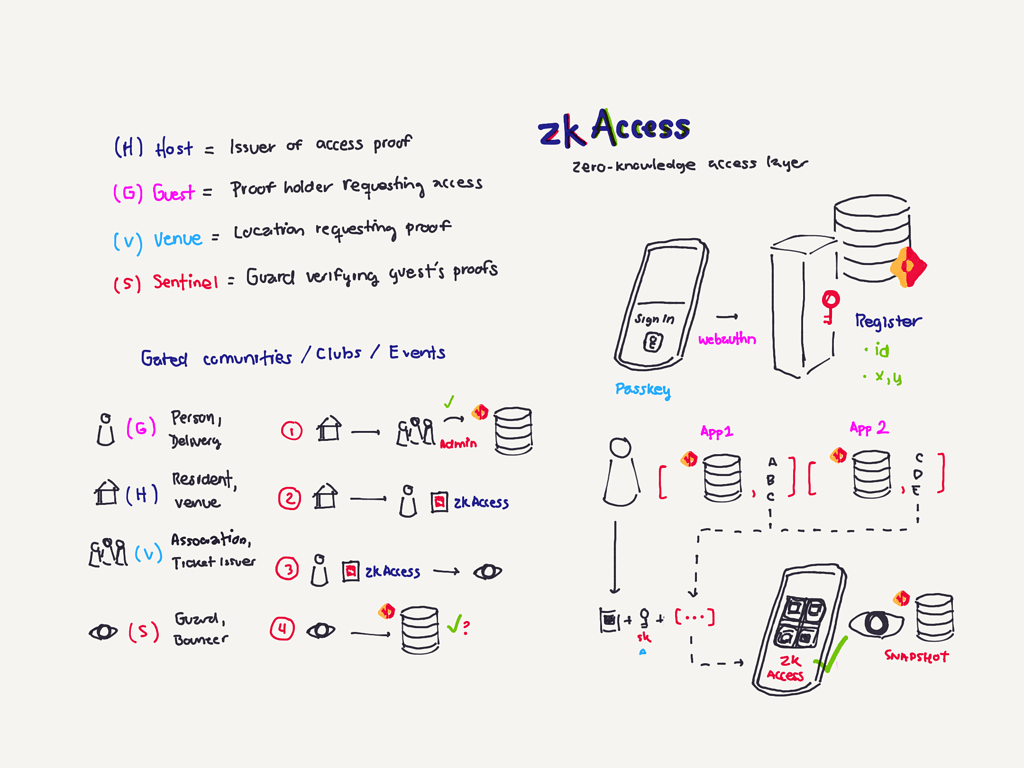 (H) Host = Issuer of access proof
(G) Guest = Proof holder requesting access
(V) Venue = Location requesting proof
(S) Sentinel = Guard verifying guest's proofs
Gated comunities / Clubs / Events
(G) Person,
Delivery
(H) Resident,
venue
(V) Association,
Ticket Issuer
(S) Guard,
Bouncer
1
Admin
2
zkAccess
3
zkAccess
4
?
zk Access
zero-knowledge access layer
Sign In
webauthn
Passkey
Register
· id
· x, y
App1
App 2
[ , A
B
C ]
[ , C
D
E ]
+ + [...]
sk
zk
Access
SNAPSHOT